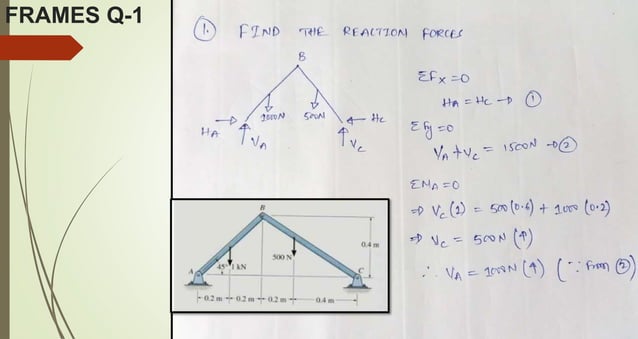 FRAMES Q-1
1. FIND THE REACTION FORCES
B
1000N 500N
HA VA VC HC
ΣFx = 0
HA = HC → ①
ΣFy = 0
VA + VC = 1500N → ②
ΣMA = 0
⇒ VC (1) = 500(0.6) + 1000 (0.2)
⇒ VC = 500N (↑)
∴ VA = 1000N (↑) (∵ From ②)
B
0.4 m
500 N
A 45° 1 kN C
0.2 m 0.2 m 0.2 m 0.4 m